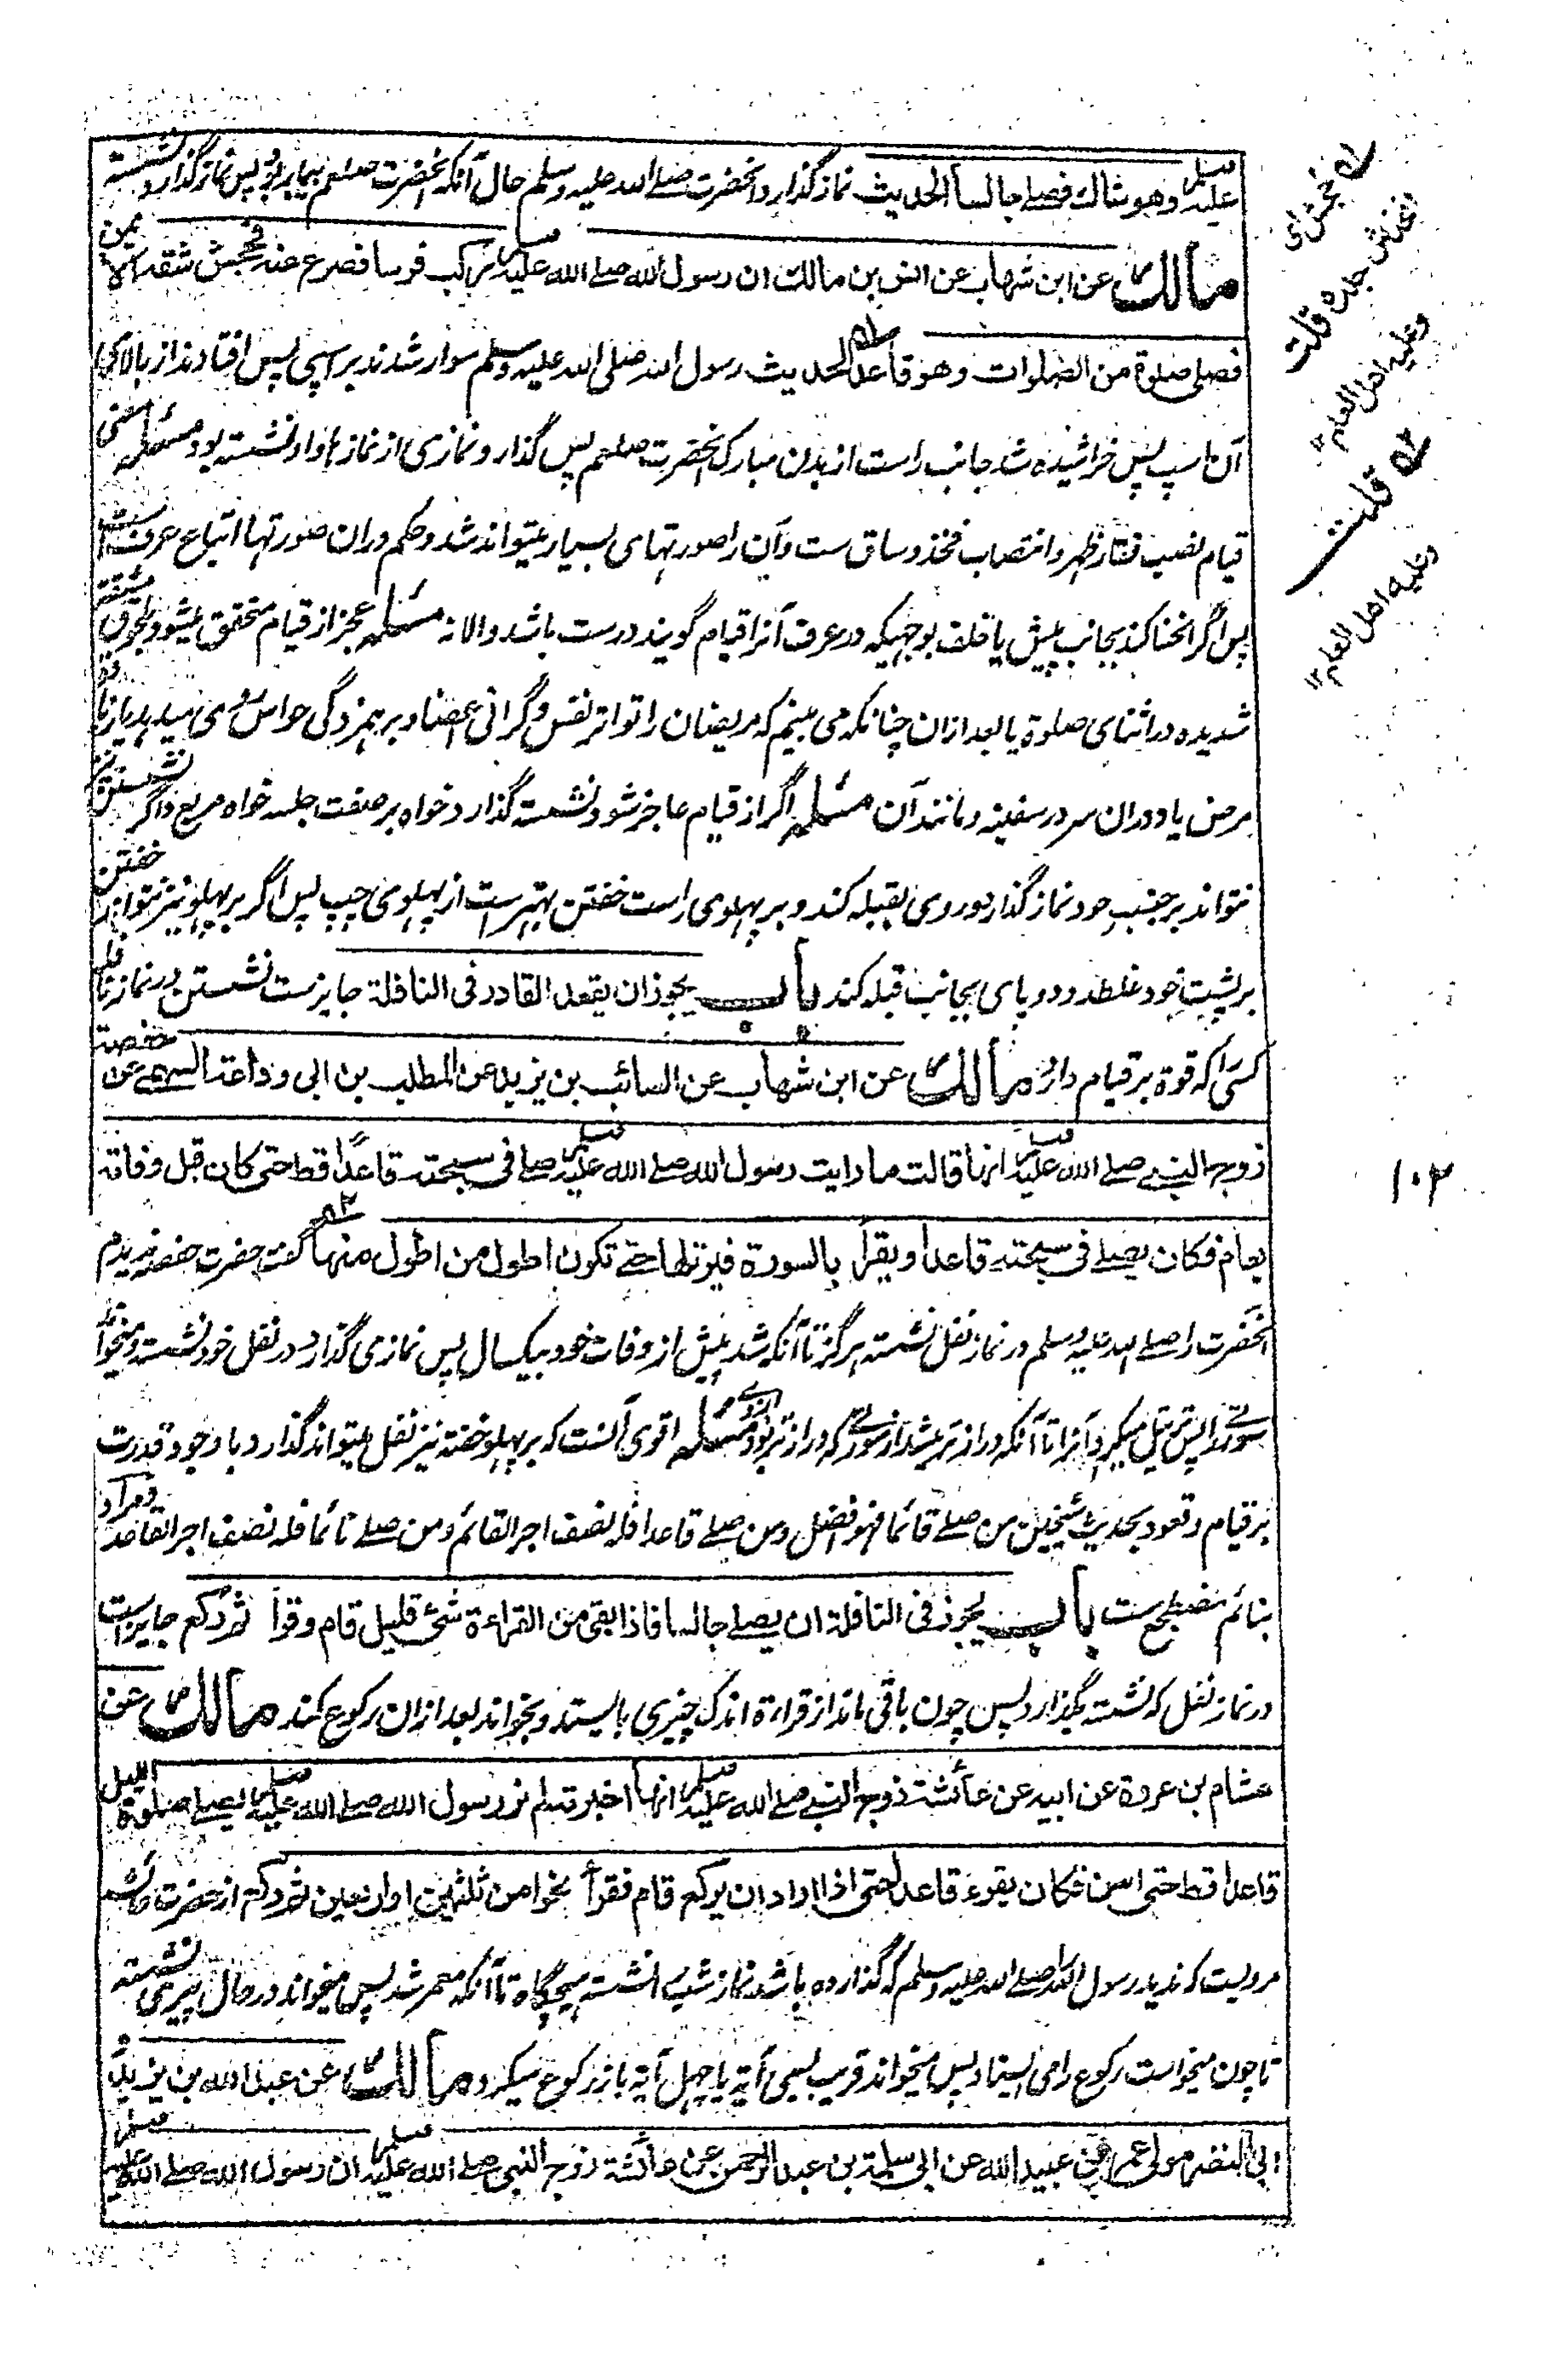 عليه وسلم وهو شاك فصلى جالساً الحديث نماز گذارد آنحضرت صلى الله عليه وسلم حال آنكه آنحضرت صلعم بيمار بود پس نماز گذارد نشسته
مالك عن ابن شهاب عن انس بن مالك ان رسول الله صلى الله عليه وسلم ركب فرسا فصرع عنه فجحش شقه الايمن
فصلى صلوة من الصلوات وهو قاعد الحديث رسول الله صلى الله عليه وسلم سوار شدند بر اسپى پس افتادند از بالاى
آن اسپ پس خراشيده شد جانب راست از بدن مبارك آنحضرت صلعم پس گذارد نمازى از نمازها و او نشسته بود مسئله معنى
قيام نصب فقار ظهر و انتصاب فخذ و ساق ست و آن را صورتهاى بسيار ميتواند شد و حكم دران صورتها اتباع عرف ست
پس اگر انحنا كند بجانب پيش يا خلف بوجهيكه در عرف آنرا قيام گويند درست باشد والا نه مسئله عجز از قيام متحقق ميشود بلحوق مشقة
شديده در اثناى صلوة يا بعد ازان چنانكه مى بينم كه مريضان را تواتر نفس و گرانى اعضا و برهمزدگى حواس روى ميدهد يا زيادة
مرض يا دوران سر در سفينه و مانند آن مسئله اگر از قيام عاجز شود نشسته گذارد خواه بر صفت جلسه خواه مربع و اگر نشستن نيز
نتواند بر جنب خود نماز گذارد و روى بقبله كند و بر پهلوى راست خفتن بهترست از پهلوى چپ پس اگر بر پهلو نيز نتواند خفتن
بر پشت خود غلطد و دو پاى بجانب قبله كند باب يجوز ان يقعد القادر فى النافلة جايزست نشستن در نماز نافله
كسى را كه قوة بر قيام دارد مالك عن ابن شهاب عن السائب بن يزيد عن المطلب بن ابى وداعة السهمى عن حفصة
زوج النبى صلى الله عليه وسلم انها قالت ما رايت رسول الله صلى الله عليه وسلم صلى فى سبحته قاعداً قط حتى كان قبل وفاته
بعام فكان يصلى فى سبحته قاعدا ويقرأ بالسورة فيرتلها حتى تكون اطول من اطول منها گفت حضرت حفصه نديدم
آنحضرت را صلى الله عليه وسلم در نماز نفل نشسته هرگز تا آنكه شد پيش از وفات خود بيكسال پس نمازى گذارد در نفل خود نشسته و ميخواند
سورتى را پس ترتيل ميكرد آنرا تا آنكه دراز تر ميشد از سورتى كه دراز تر بود ازوى مسئله اقوى آنست كه بر پهلو خفته نيز نفل ميتواند گذارد با وجود قدرت
بر قيام و قعود بحديث شيخين من صلى قائما فهو افضل ومن صلى قاعدا فله نصف اجر القائم ومن صلى نائما فله نصف اجر القاعد و مراد
بنائم مضطجع ست باب يجوز فى النافلة ان يصلى جالسا فاذا بقى من القراءة شىء قليل قام وقرأ ثم ركع جايز است
در نماز نفل كه نشسته بگذارد پس چون باقى ماند از قراءة اندك چيزى بايستد و بخواند بعد ازان ركوع كند مالك عن
هشام بن عروة عن ابيه عن عائشة زوج النبى صلى الله عليه وسلم انها اخبرته لم تر رسول الله صلى الله عليه وسلم يصلى صلوة الليل
قاعدا قط حتى اسن فكان يقرء قاعدا حتى اذا اراد ان يركع قام فقرأ نحوا من ثلثين او اربعين ثم ركع از حضرت عائشه
مرويست كه نديد رسول الله را صلى الله عليه وسلم كه گذارده باشد نماز شب نشسته هيچگاه تا آنكه معمر شد پس ميخواند در حال پيرى نشسته
تا چون ميخواست ركوع را مى ايستاد پس ميخواند قريب بسى آية يا چهل آية باز ركوع ميكرد مالك عن عبد الله بن يزيد و
ابى النضر مولى عمر بن عبيد الله عن ابى سلمة بن عبد الرحمن عن عائشة زوج النبى صلى الله عليه وسلم ان رسول الله صلى الله عليه وسلم
فجحش اى
انخدش جلده قلت
وعليه اهل العلم ١٢
قلت
وعليه اهل العلم ١٢
١٠٢